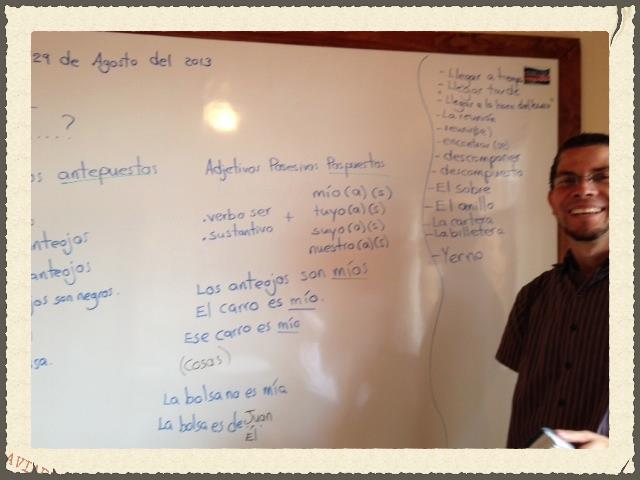 29 de Agosto del 2013
...?
os antepuestos
nteojos
anteojos
jos son negros.
sa.
Adjetivos Posesivos Pospuestos
.verbo ser +
.sustantivo
mío(a)(s)
tuyo(a)(s)
suyo(a)(s)
nuestro(a)(s)
Los anteojos son míos
El carro es mío.
Ese carro es mío
(cosas)
La bolsa no es mía
La bolsa es de Juan
Él
- Llegar a tiempo
- Llegar tarde
- Llegar a la hora del
- La reunión
- reunir(se)
- encontrar(se)
- descomponer
- descompuesto
- El sobre
- El anillo
- La cartera
- La billetera
- Yerno